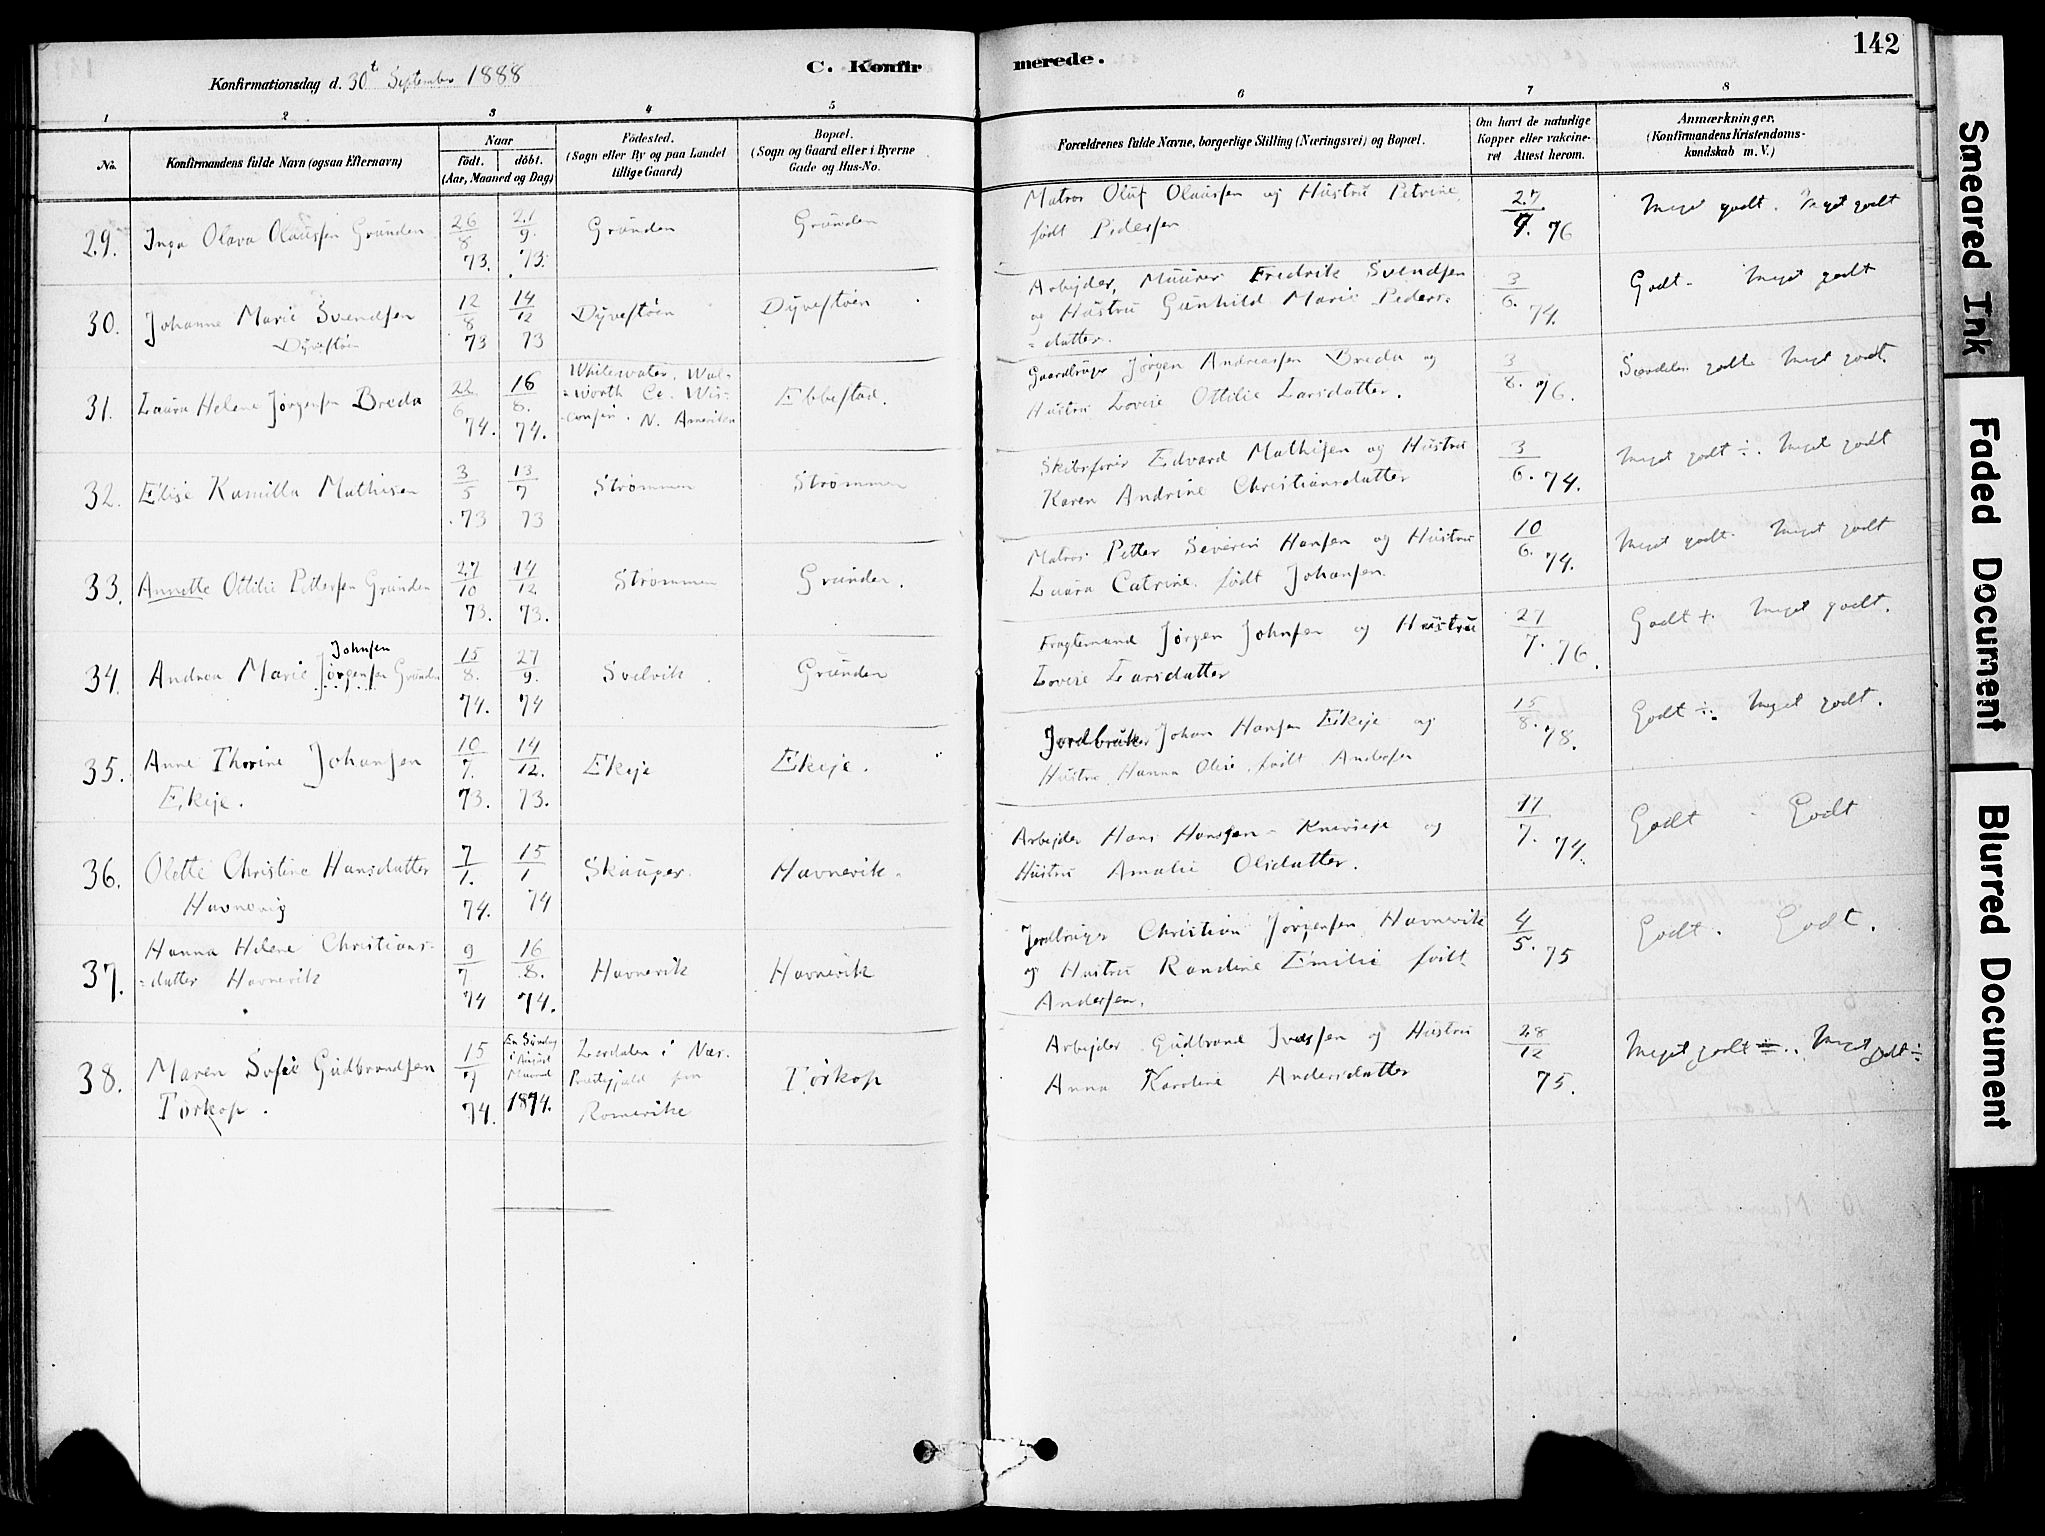 142
Konfirmationsdag d. 30t September 1888
C. Konfirmerede.
1 2 3 4 5 6 7 8
No.
Konfirmandens fulde Navn (ogsaa Efternavn)
Naar
født. døbt.
(Aar, Maaned og Dag)
Fødested.
(Sogn eller By og paa Landet
tillige Gaard)
Bopæl.
(Sogn og Gaard eller i Byerne
Gade og Hus-No.
Forældrenes fulde Navne, borgerlige Stilling (Næringsvei) og Bopæl.
Om havt de naturlige
Kopper eller vakcine-
ret Attest herom.
Anmærkninger.
(Konfirmandens Kristendoms-
kundskab m. V.)
29. Inga Olava Olaussen Grunden 26/8 73. 21/9. 73. Grunden Grunden
Matros Oluf Olaussen og Hustru Petrine,
født Pedersen
27/7. 76 Meget godt. Meget godt
30. Johanne Marie Svendsen
Dyvestöen
12/8 73 14/12 73 Dyvestöen Dyvestöen
Arbejder, Muurer Fredrik Svendsen
og Hustru Gunhild Marie Peders-
datter.
3/6. 74. Godt - Meget godt
31. Laura Helene Jørgensen Breda 22/6 74. 16/8. 74.
Whitewater, Wal-
worth Co. Wis-
consin. N. Amerika
Ebbestad.
Gaardbruger Jørgen Andreassen Breda og
Hustru Lovise Ottilie Larsdatter.
3/8. 76. Særdeles godt Meget godt.
32. Elise Kamilla Mathisen 3/5 73 13/7 73 Strømmen Strømmen
Skibsfører Edvard Mathisen og Hustru
Karen Andrine Christiansdatter
3/6. 74. Meget godt ÷. Meget godt
33. Annette Ottilie Pettersen Grunden 27/10 73. 14/12 73. Strømmen Grunden.
Matros Petter Severin Hansen og Hustru
Laura Catrine, født Johansen.
10/6. 74. Meget godt. Meget godt
34. Andrea Marie Jørgensen Grunden
Johnsen
15/8. 74. 27/9. 74 Svelvik Grunden
Fragtemand Jørgen Johnsen og Hustru
Lovise Larsdatter
27/7. 76. Godt +. Meget godt.
35. Anne Thorine Johansen
Ekeje.
10/7. 73. 14/12. 73. Ekeje Ekeje.
Jordbruker Johan Hansen Ekeje og
Hustru Hanna Olise, født Andersen
15/8. 78. Godt ÷. Meget godt.
36. Olette Christine Hansdatter
Havnevig
7/1. 74. 15/1 74 Skauger. Havnevik.
Arbejder Hans Hansen
Hustru Amalie Olsdatter.
17/7. 74. Godt - Godt
37. Hanna Helene Christians-
datter Havnevik
9/7 74 16/8. 74. Havnevik Havnevik
Jordbruger Christian Jørgensen Havnevik
og Hustru Randine Emilie født
Andersen.
4/5. 75 Godt. Godt.
38. Maren Sofie Gudbrandsen
Tørkop.
15/7 74.
En Søndag
i August
Maaned
1874.
Lerdalen i Næs
Præstegjeld paa
Romerike
Tørkop
Arbejder Gudbrand Iversen og Hustru
Anna Karoline Andersdatter
28/12 75. Meget godt ÷. Meget godt ÷
Smeared Ink
Faded Document
Blurred Document